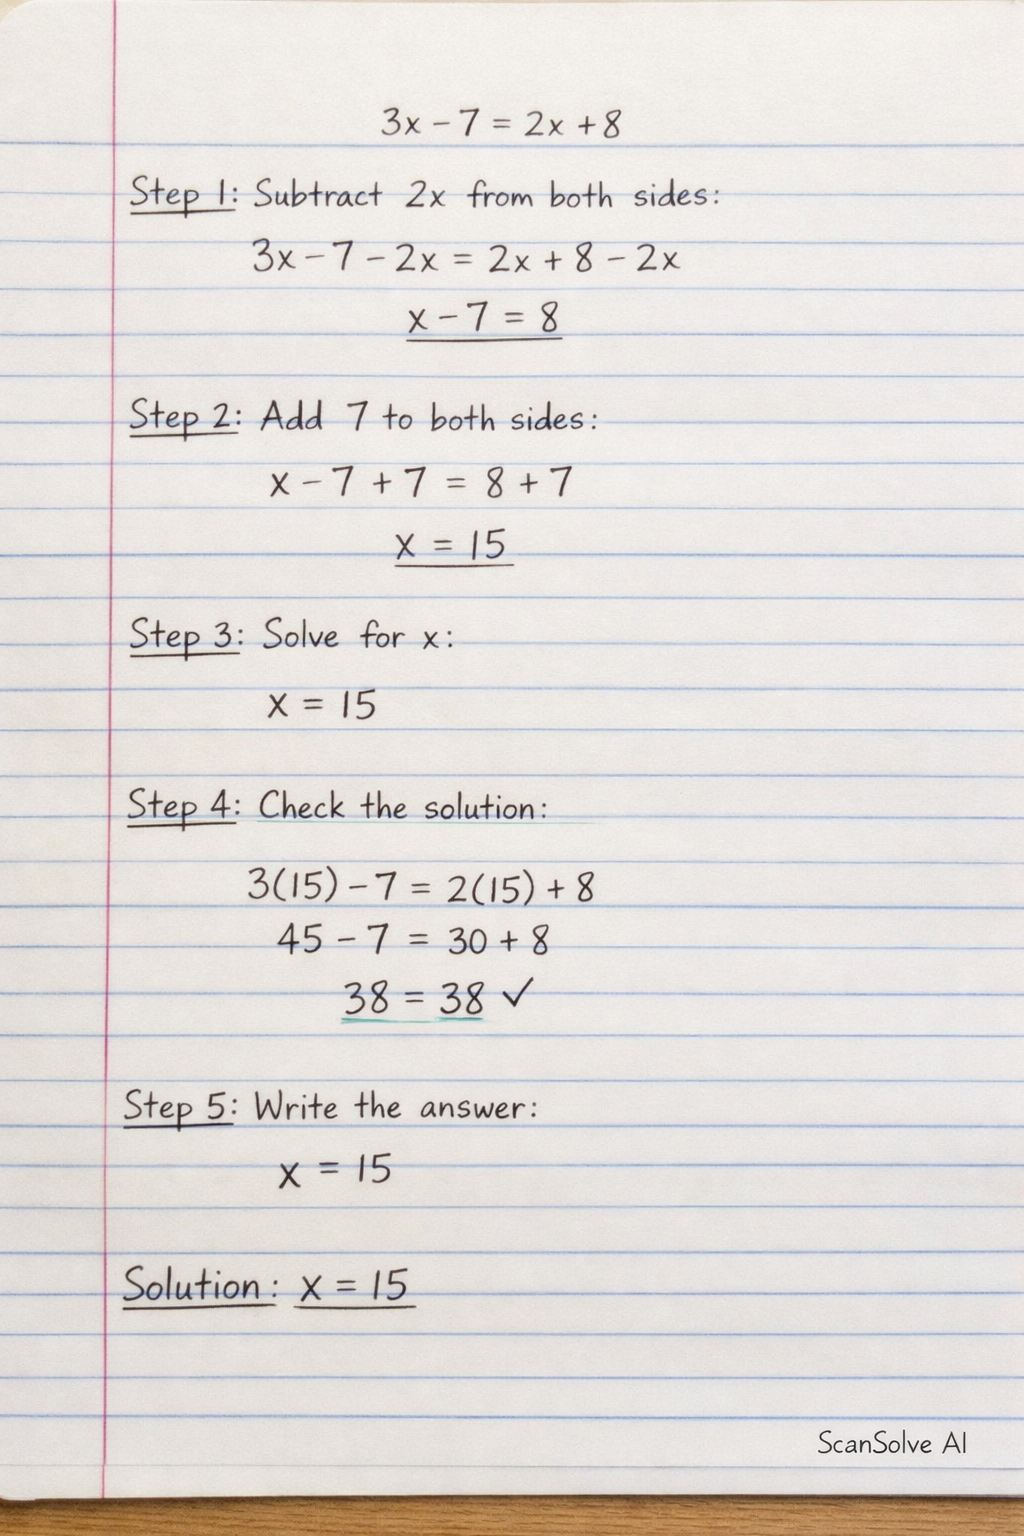 3x - 7 = 2x + 8
Step 1: Subtract 2x from both sides:
3x - 7 - 2x = 2x + 8 - 2x
x - 7 = 8
Step 2: Add 7 to both sides:
x - 7 + 7 = 8 + 7
x = 15
Step 3: Solve for x:
x = 15
Step 4: Check the solution:
3(15) - 7 = 2(15) + 8
45 - 7 = 30 + 8
38 = 38 ✓
Step 5: Write the answer:
x = 15
Solution: x = 15
ScanSolve AI